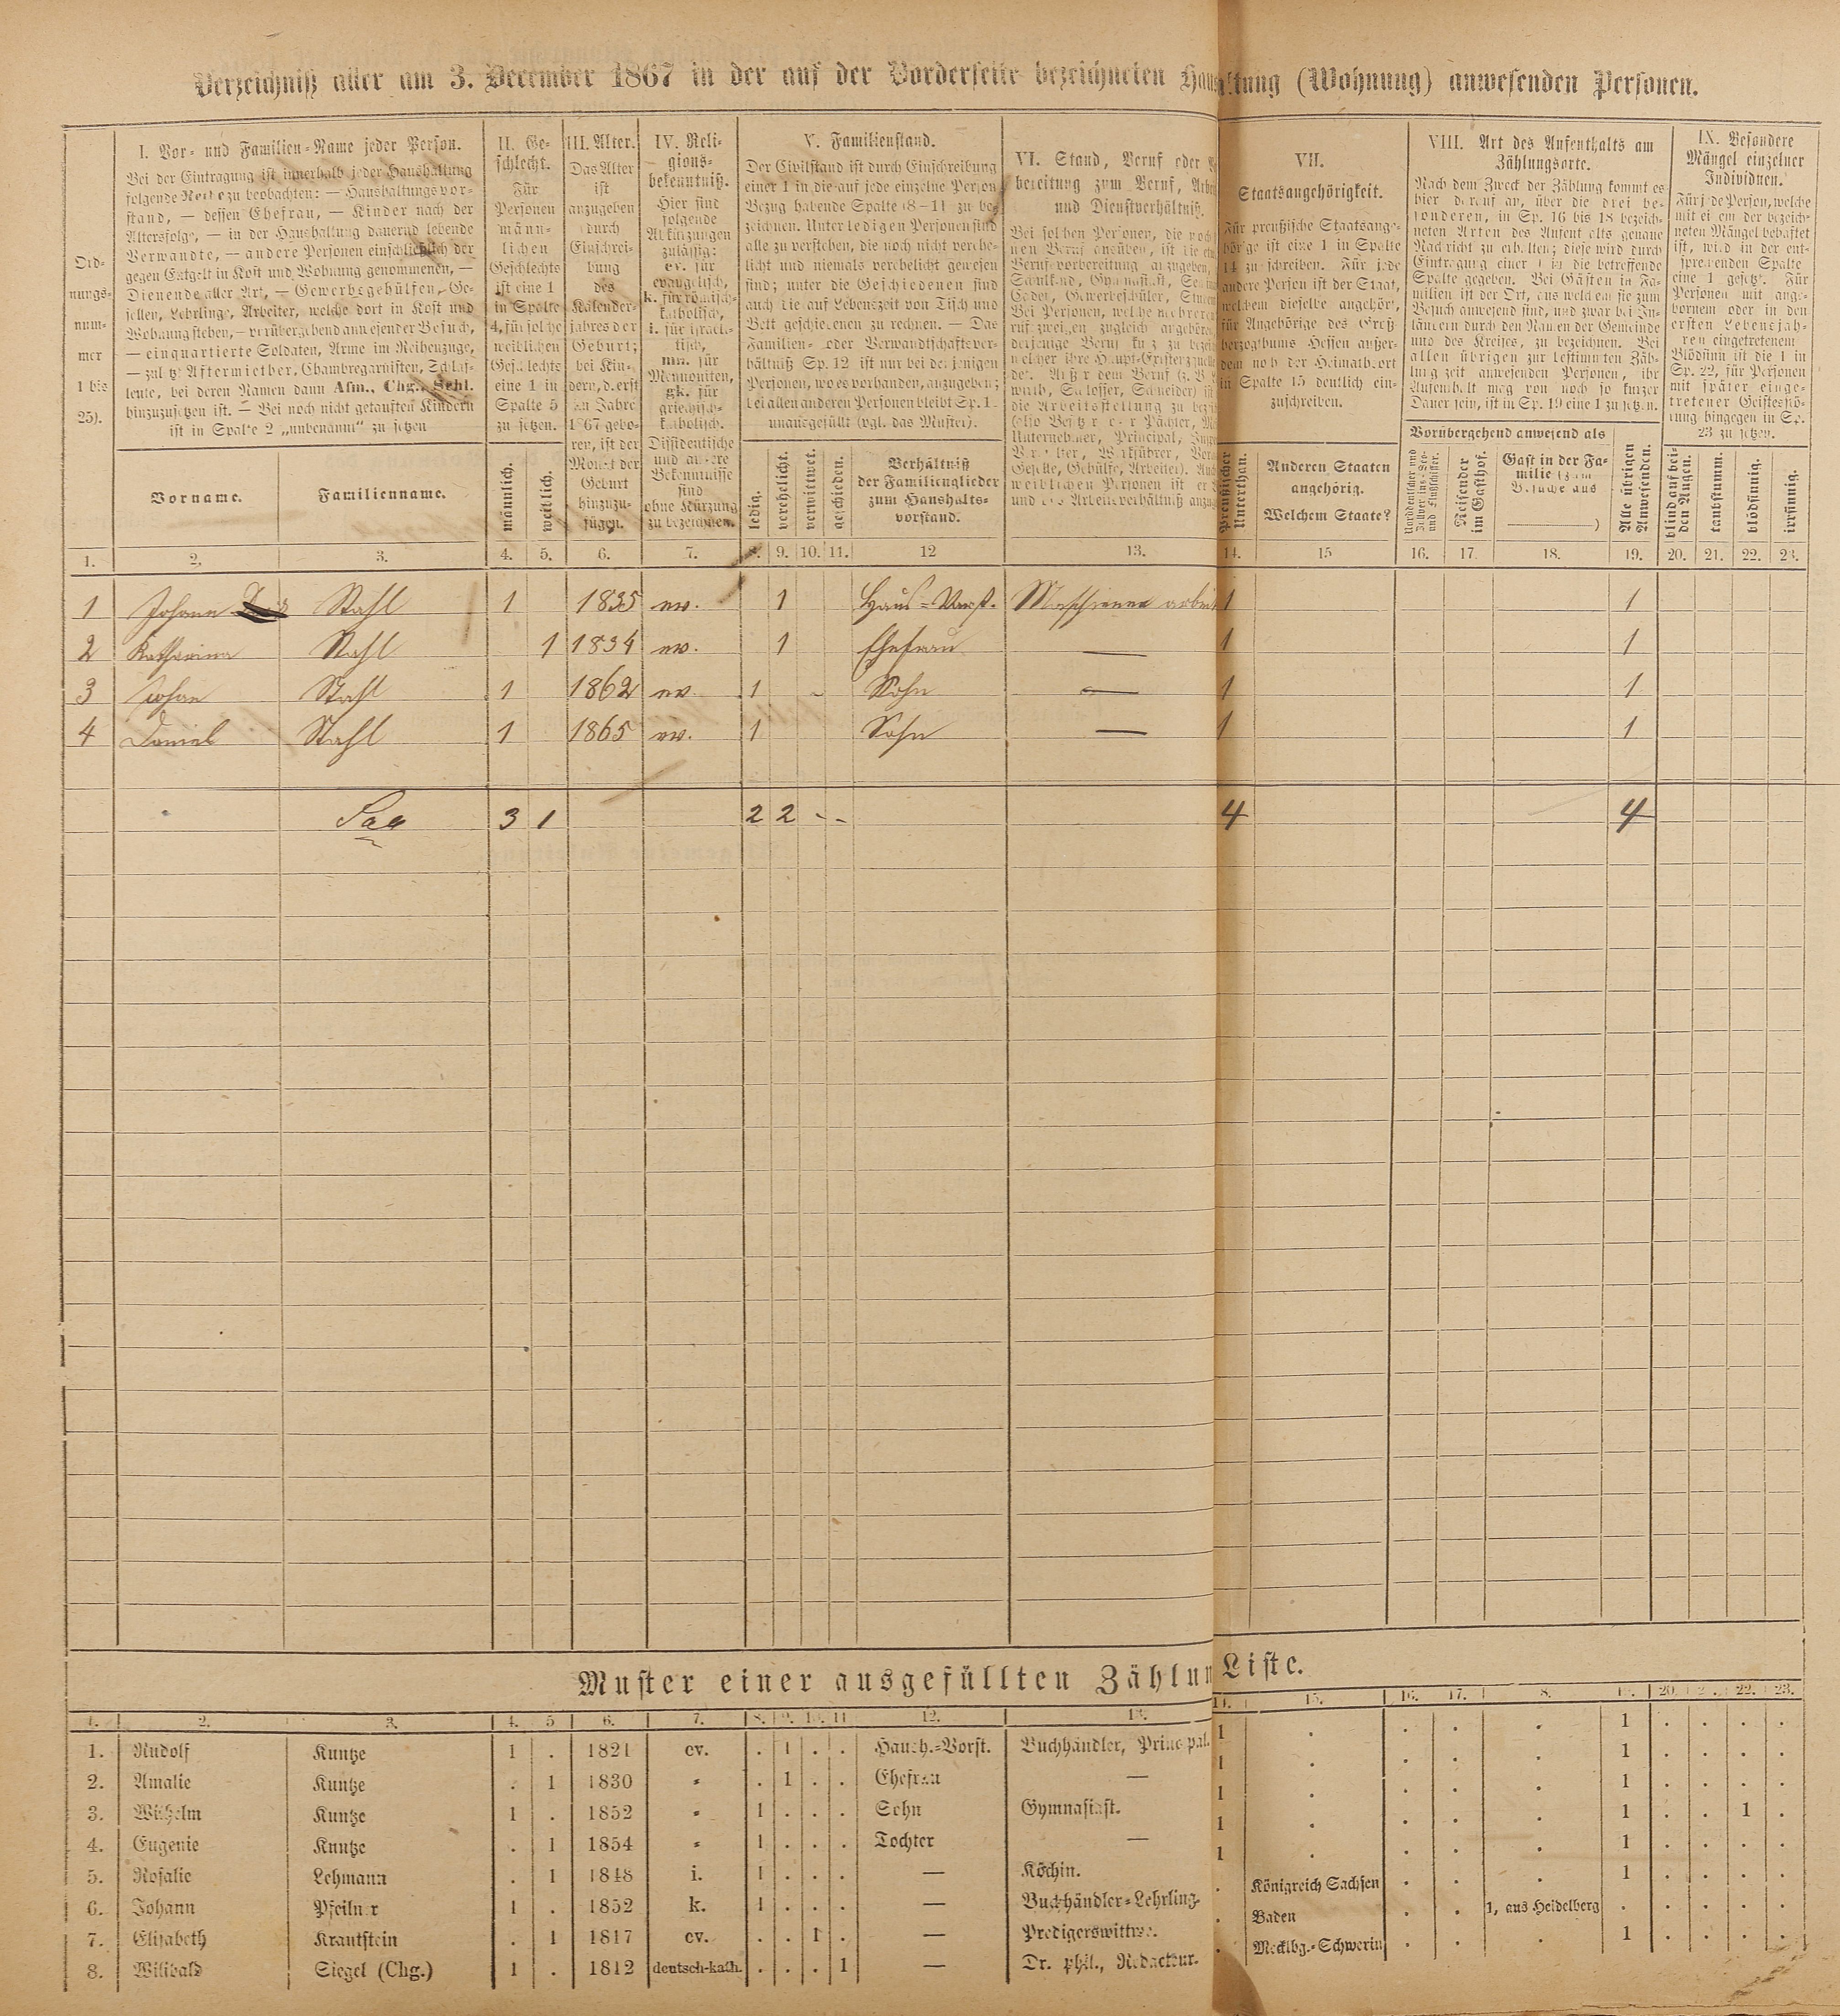 Verzeichniß aller am 3. December 1867 in der auf der Vorderseite bezeichneten Haus ltung (Wohnung) anwesenden Personen.
Ord-
nungs-
num-
mer
1 bis
25).
I. Vor- und Familien-Name jeder Person.
Bei der Eintragung ist innerhalb jeder Haushaltung
folgende Reihe zu beobachten: — Haushaltungsvor-
stand, — dessen Ehefrau, — Kinder nach der
Altersfolge, — in der Haushaltung dauernd lebende
Verwandte, — andere Personen einschließlich der
gegen Entgelt in Kost und Wohnung genommenen, —
Dienende aller Art, — Gewerbsgehülfen, Ge-
sellen, Lehrlinge, Arbeiter, welche dort in Kost und
Wohnung stehen, — vorübergehend anwesender Besuch,
— einquartierte Soldaten, Arme im Reihenzuge,
— zuletzt Aftermiether, Chambregarnisten, Schlaf-
leute, bei deren Namen dann Afm., Chg., Schl.
hinzuzusetzen ist. — Bei noch nicht getauften Kindern
ist in Spalte 2 „unbenannt“ zu setzen
Vorname.
Familienname.
II. Ge-
schlecht.
Für
Personen
männ-
lichen
Geschlechts
ist eine 1
in Spalte
4, für solche
weiblichen
Geschlechts
eine 1 in
Spalte 5
zu setzen.
männlich.
weiblich.
III. Alter.
Das Alter
ist
anzugeben
durch
Einschrei-
bung
des
Kalender-
jahres der
Geburt;
bei Kin-
dern, d. erst
im Jahre
1867 gebo-
ren, ist der
Monat der
Geburt
hinzuzu-
fügen.
IV. Reli-
gions-
bekenntniß.
Hier sind
folgende
Abkürzungen
zulässig:
ev. für
evangelisch,
k. für römisch-
katholisch,
i. für israeli-
tisch,
mn. für
Mennoniten,
gk. für
griechisch-
katholisch.
Dissidentische
und andere
Bekenntnisse
sind
ohne Kürzung
zu bezeichnen.
V. Familienstand.
Der Civilstand ist durch Einschreibung
einer 1 in die auf jede einzelne Person
Bezug habende Spalte (8–11) zu be-
zeichnen. Unter ledigen Personen sind
alle zu verstehen, die noch nicht verehe-
licht und niemals verehelicht gewesen
sind; unter die Geschiedenen sind
auch die auf Lebenszeit von Tisch und
Bett geschiedenen zu rechnen. — Das
Familien- oder Verwandtschaftsver-
hältniß Sp. 12 ist nur bei denjenigen
Personen, wo es vorhanden, anzugeben;
bei allen anderen Personen bleibt Sp. 1
unausgefüllt (vgl. das Muster).
ledig.
verehelicht.
verwittwet.
geschieden.
Verhältniß
der Familienglieder
zum Haushalts-
vorstand.
VI. Stand, Beruf oder
bereitung zum Beruf, Arbei
und Dienstverhältniß.
VII.
Staatsangehörigkeit.
Für preußische Staatsange-
hörige ist eine 1 in Spalte
14 zu schreiben. Für jede
andere Person ist der Staat,
welchem dieselbe angehört,
für Angehörige des Groß-
herzogthums Hessen außer-
dem noch der Heimathsort
in Spalte 15 deutlich ein-
zuschreiben.
Preußischer
Unterthan.
Anderen Staaten
angehörig.
Welchem Staate?
VIII. Art des Aufenthalts am
Zählungsorte.
Nach dem Zweck der Zählung kommt es
hier darauf an, über die drei be-
sonderen, in Sp. 16 bis 18 bezeich-
neten Arten des Aufenthalts genaue
Nachricht zu erhalten; diese wird durch
Eintragung einer 1 in die betreffende
Spalte gegeben. Bei Gästen in Fa-
milien ist der Ort, aus welchem sie zum
Besuch anwesend sind, und zwar bei In-
ländern durch den Namen der Gemeinde
und des Kreises, zu bezeichnen. Bei
allen übrigen zur bestimmten Zäh-
lungszeit anwesenden Personen, ihr
Aufenthalt mag von noch so kurzer
Dauer sein, ist in Sp. 19 eine 1 zu setzen.
Vorübergehend anwesend als
Reisender
im Gasthof.
Gast in der Fa-
milie (zum
Besuche aus
)
Alle übrigen
Anwesenden.
IX. Besondere
Mängel einzelner
Individuen.
Für jede Person, welche
mit einem der bezeich-
neten Mängel behaftet
ist, wird in der ent-
sprechenden Spalte
eine 1 gesetzt. Für
Personen mit ange-
bornem oder in den
ersten Lebensjah-
ren eingetretenem
Blödsinn ist die 1 in
Sp. 22, für Personen
mit später einge-
tretener Geistesstö-
rung hingegen in Sp.
23 zu setzen.
blind auf bei-
den Augen.
taubstumm.
blödsinnig.
irrsinnig.
1. 2. 3. 4. 5. 6. 7. 8. 9. 10. 11. 12 13. 14. 15 16. 17. 18. 19. 20. 21. 22. 23.
1 Johann Stahl 1 1835 ev. 1 Haus-Vorst. Maschienen arbeit 1 1
2 Katharina Stahl 1 1834 ev. 1 Ehefrau — 1 1
3 Johan Stahl 1 1862 ev. 1 Sohn — 1 1
4 Daniel Stahl 1 1865 ev. 1 Sohn — 1 1
Saa 3 1 2 2 - - 4 4
Muster einer ausgefüllten Zählun Liste.
1. 2. 3. 4. 5 6. 7. 8. 9. 10. 11 12. 13. 14. 15. 16. 17. 8. 19. 20. 21. 22. 23.
1. Rudolf Kuntze 1 . 1821 ev. . 1 . . Haush.-Vorst. Buchhändler, Principal. 1 . . . . 1 . . . .
2. Amalie Kuntze . 1 1830 „ . 1 . . Ehefrau — 1 . . . . 1 . . . .
3. Wilhelm Kuntze 1 . 1852 „ 1 . . . Sohn Gymnasiast. 1 . . . . 1 . . . .
4. Eugenie Kuntze . 1 1854 „ 1 . . . Tochter — 1 . . . . 1 . . 1 .
5. Rosalie Lehmann . 1 1848 i. 1 . . . — Köchin. 1 . . . . 1 . . . .
6. Johann Pfeilner 1 . 1852 k. 1 . . . — Buchhändler-Lehrling. . Königreich Sachsen . . . 1 . . . .
7. Elisabeth Krautstein . 1 1817 ev. . . 1 . — Predigerswittwe. . Baden . . 1, aus Heidelberg . . . . .
8. Wilibald Siegel (Chg.) 1 . 1812 deutsch-kath. . . . 1 — Dr. phil., Redacteur. . Mecklbg.-Schwerin . . . 1 . . . .